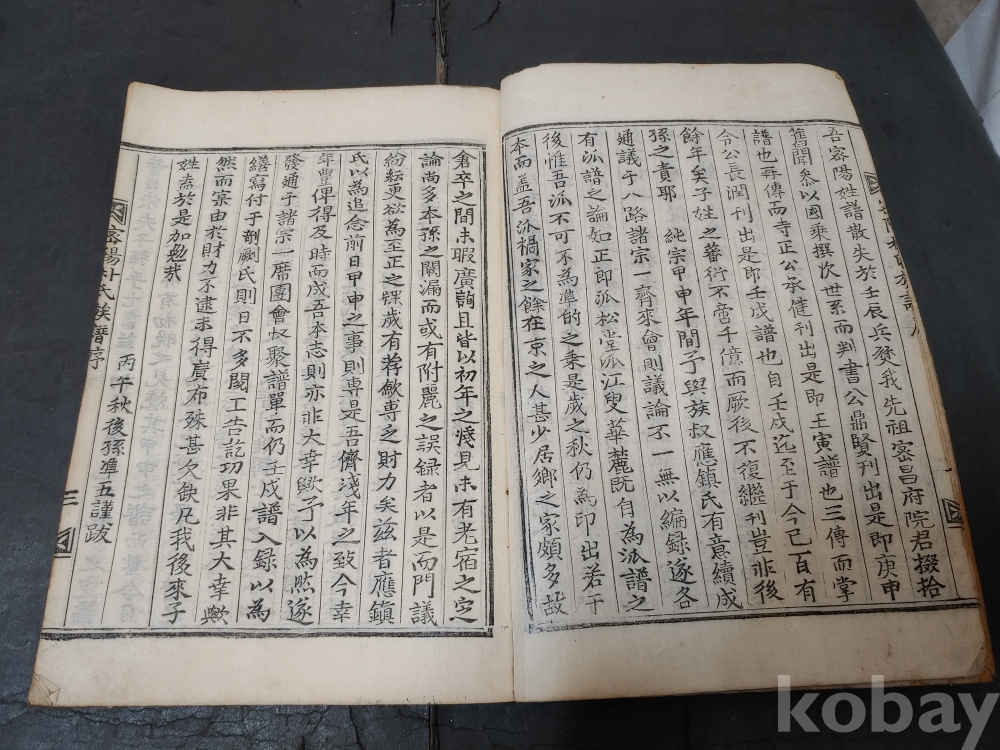 吾密陽姓譜散失於壬辰兵燹我先祖密昌府院君掇拾
舊聞叅以國乘撰次世系而判書公鼎賢刊出是即庚申
譜也再傳而寺正公承健刊出是即壬寅譜也三傳而掌
令公長潤刊出是即壬戌譜也自壬戌迄至于今已百有
餘年矣子姓之蕃衍不啻千億而厥後不復繼刊豈非後
孫之責耶 純宗甲申年間予與族叔應鎮氏有意續成
通議于八路諸宗一齊來會則議論不一無以編錄遂各
有派譜之論如正郎派松堂派江叟華麓既自為派譜之
後惟吾派不可不為準的之乘是歲之秋仍為印出若干
本而盖吾派禍家之餘在京之人甚少居鄉之家頗多故
倉卒之間未暇廣詢且皆以初年之淺見未有老宿之定
論尚多本孫之闕漏而或有附麗之誤録者以是而門議
紛紜更欲為至正之牒歲有荐歉專乏財力矣茲者應鎮
氏以為追念前日甲申之事則専是吾儕淺年之致今幸
年豊俾得及時而成吾本志則亦非大幸歟予以為然遂
發通于諸宗一席團會收聚譜單而仍壬戌譜入録以為
繕寫付于剞劂氏則日不多閱工告訖功果非其大幸歟
然而寀由於財力不逮未得廣布殊甚欠缺凡我後來子
姓素於是加勉哉
丙午秋後孫準五謹跋
密陽朴氏族譜序
三